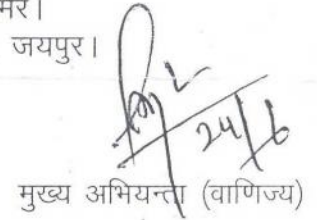 मेर।
जयपुर।
24/6
मुख्य अभियन्ता (वाणिज्य)